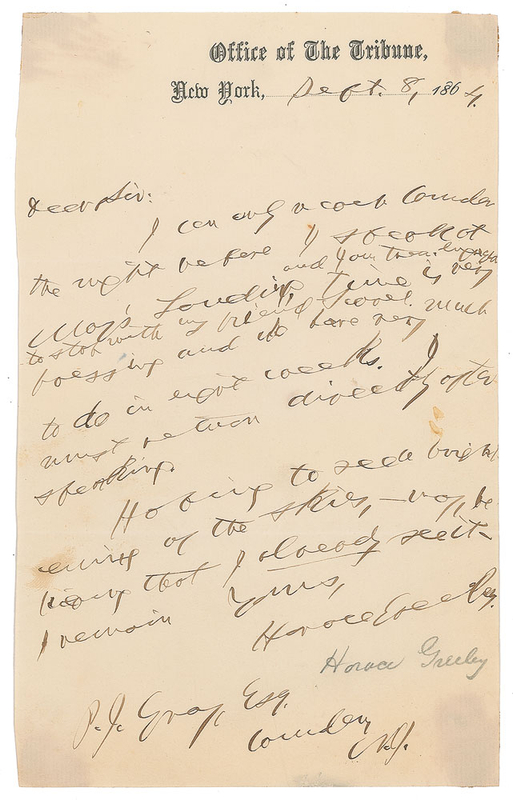 Office of The Tribune,
New York, Sept. 8, 1864.
Dear Sir:
I can only reach Camden
the night before I speak at
Mays Landing, and I am then engaged
to stop with my friend Scovel. Time is very
pressing and I have very much
to do in eight weeks. I
must return directly after
speaking.
Hoping to see bright-
ening of the skies, - nay, be-
lieving that I already see it -
I remain Yours,
Horace Greeley.
Horace Greeley
P. J. Gray, Esq.
Camden, N.J.